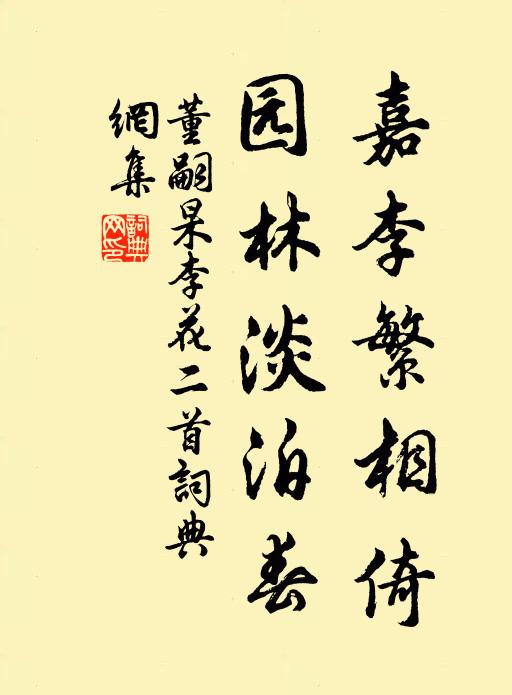 嘉李繁相倚
园林淡泊春
董嗣杲李花二首詞典
網集
詞典
网印